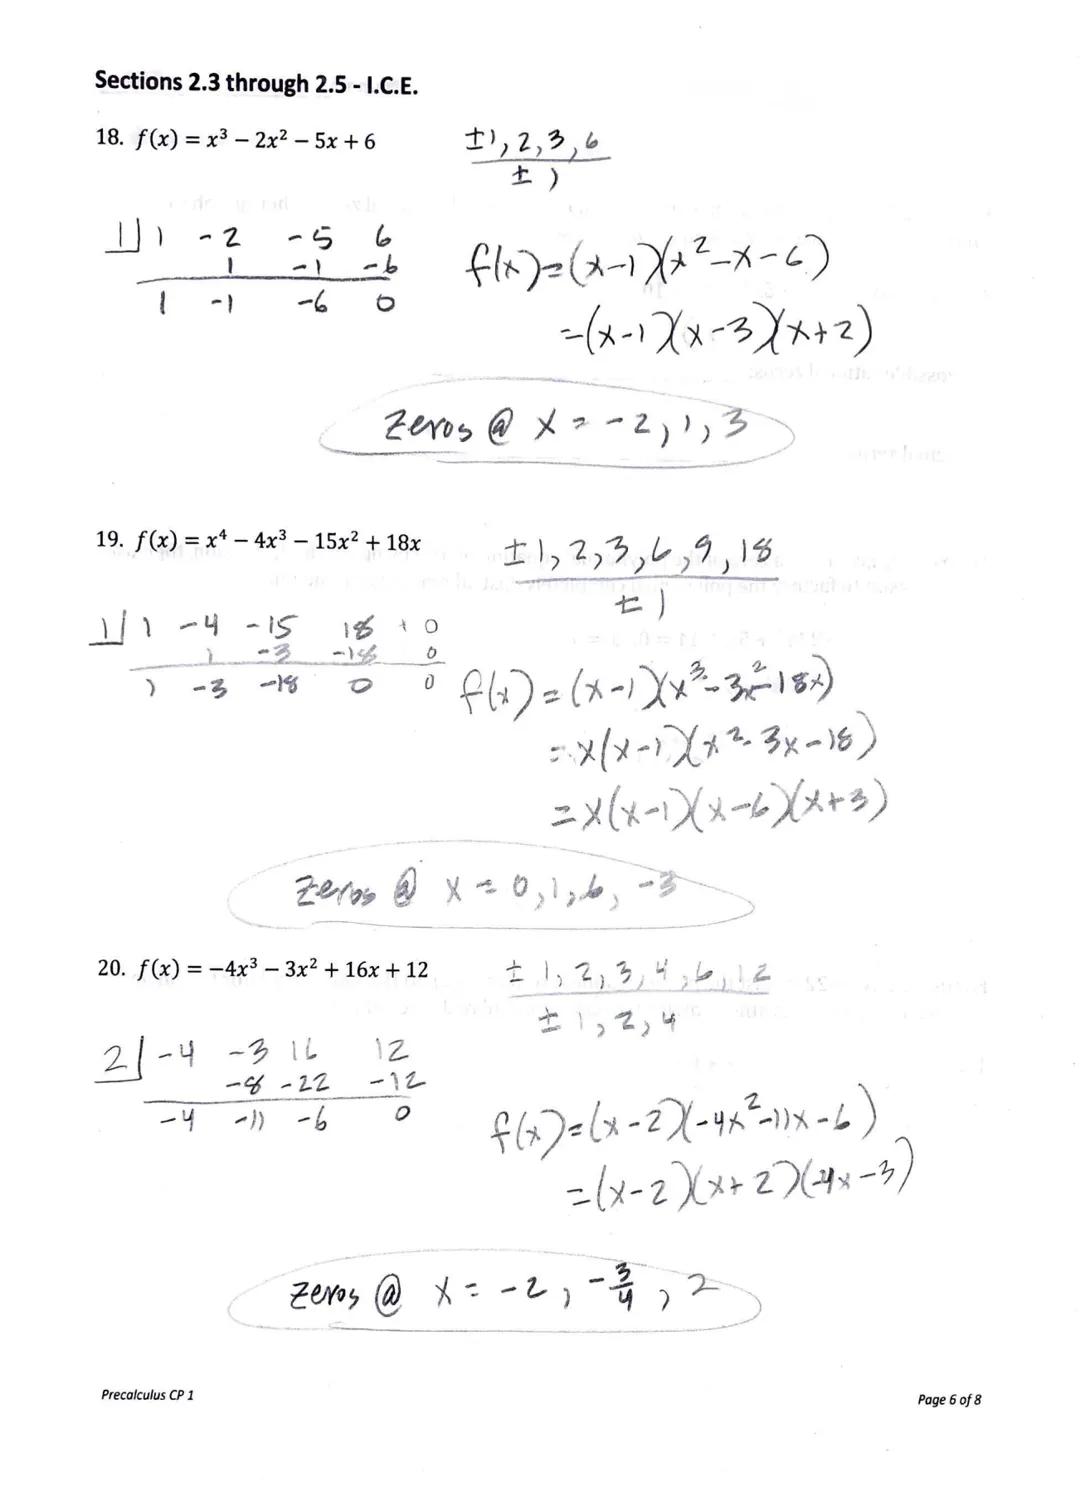 Sections 2.3 through 2.5 - I.C.E.
18. f(x) = x³ – 2x² – 5x + 6
±1, 2, 3, 6
± 1
1| 1 -2 -5 6
1 -1 -6
1 -1 -6 0
f(x)=(x-1)(x²-x-6)
=(x-1)(x-3)(x+2)
Zeros @ x = -2, 1, 3
19. f(x) = x⁴ – 4x³ – 15x² + 18x
±1, 2, 3, 6, 9, 18
±1
1| 1 -4 -15 18 + 0
1 -3 -18 0
1 -3 -18 0 0
f(x) = (x-1)(x³-3x²-18x)
= x(x-1)(x²-3x-18)
= x(x-1)(x-6)(x+3)
Zeros @ x = 0, 1, 6, -3
20. f(x) = −4x³ – 3x² + 16x + 12
± 1, 2, 3, 4, 6, 12
± 1, 2, 4
2| -4 -3 16 12
-8 -22 -12
-4 -11 -6 0
f(x)=(x-2)(-4x²-11x-6)
=(x-2)(x+2)(-4x-3)
Zeros @ x = -2, -3/4, 2
Precalculus CP 1
Page 6 of 8